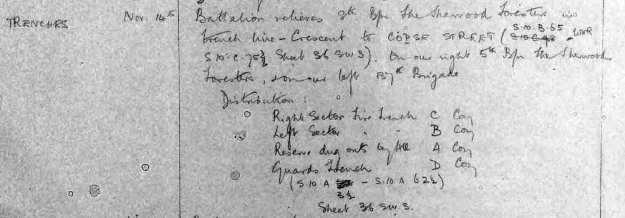 TRENCHES Nov 14th Battalion relieves 8th Bn The Sherwood Foresters in
trench line - Crescent to COPSE STREET (S.10.B.65
S.10.C.75½ Sheet 36 SW 3). On our right 5th Bn The Sherwood
Foresters, & on our left 137th Brigade
Distribution:
Right Sector Fire Trench C Coy
Left Sector " " B Coy
Reserve dug outs A Coy
Guards Trench D Coy
(S.10.A - S.10.A 62½)
3½
Sheet 36 SW 3.